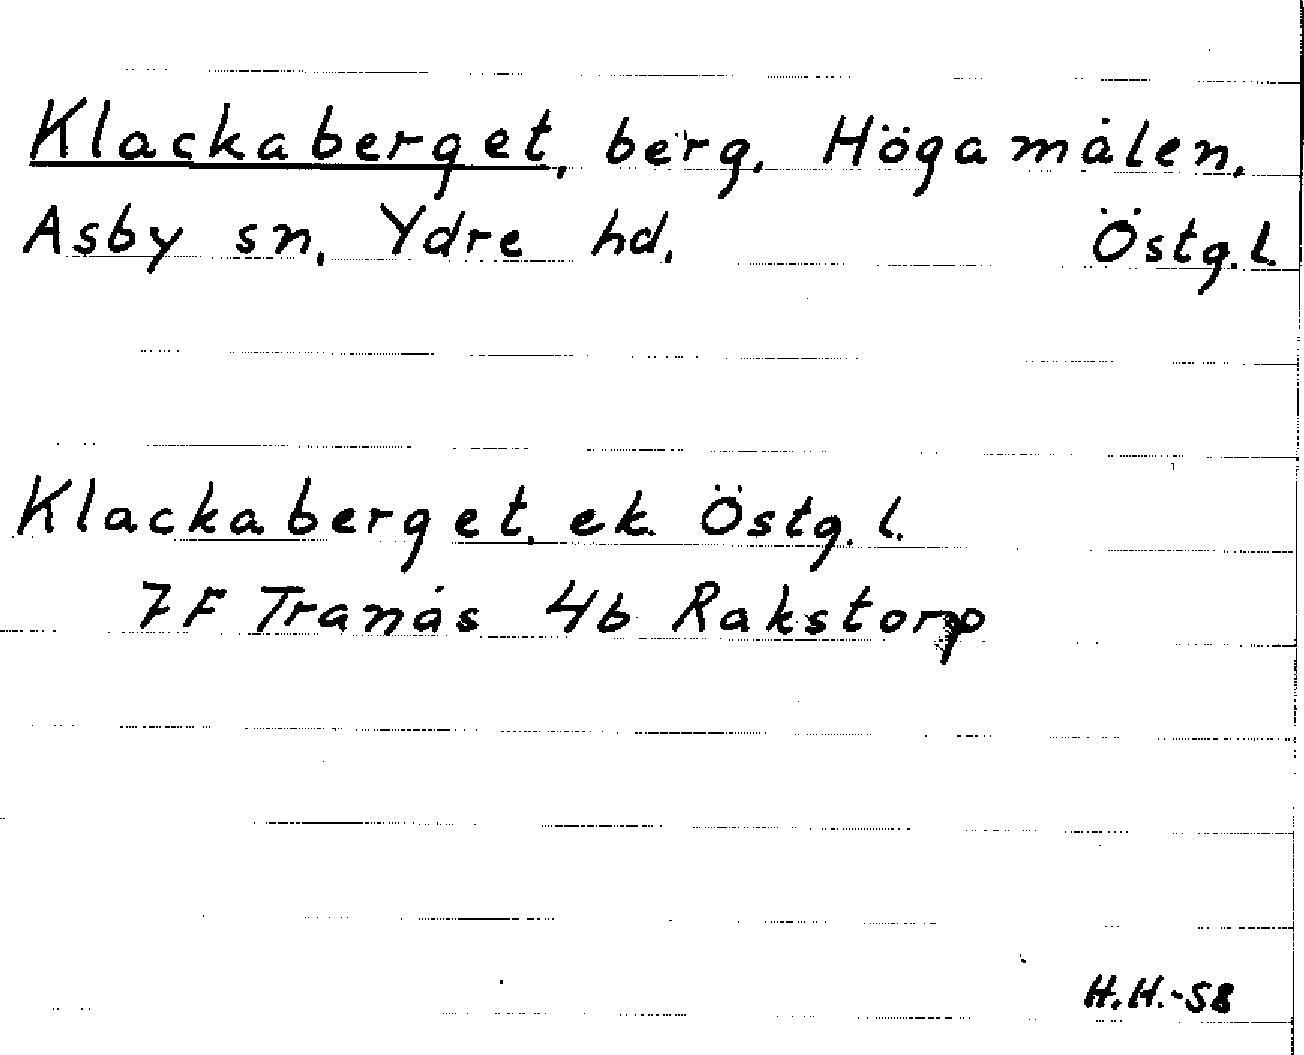 Klackaberget, berg, Högamålen,
Asby sn, Ydre hd, Östg.l.
Klackaberget, ek Östg.l.
7F Tranås 4b Rakstorp
H.H.-58